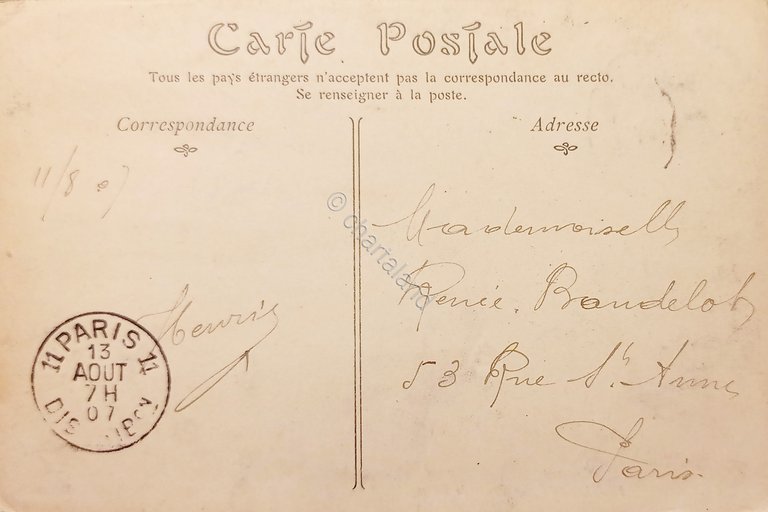 Carte Postale
Tous les pays étrangers n'acceptent pas la correspondance au recto.
Se renseigner à la poste.
Correspondance
Adresse
11/8 07
Henri
PARIS
11 11
13
AOUT
7H
07
DISTRIBON
Mademoiselle
Renée Baudelot
53 Rue Ste Anne
Paris
© chartaland